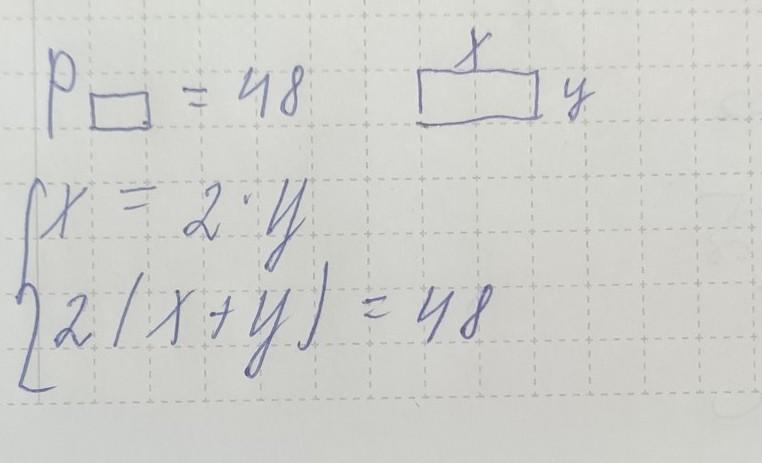 P▭ = 48 x y
x = 2 · y
2(x+y) = 48